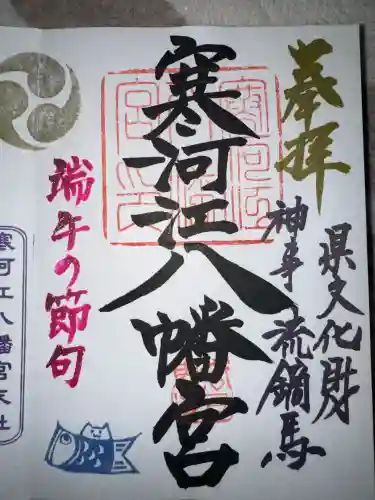 奉拝
県文化財
神事 流鏑馬
寒河江八幡宮
端午の節句
寒河江八幡宮本社